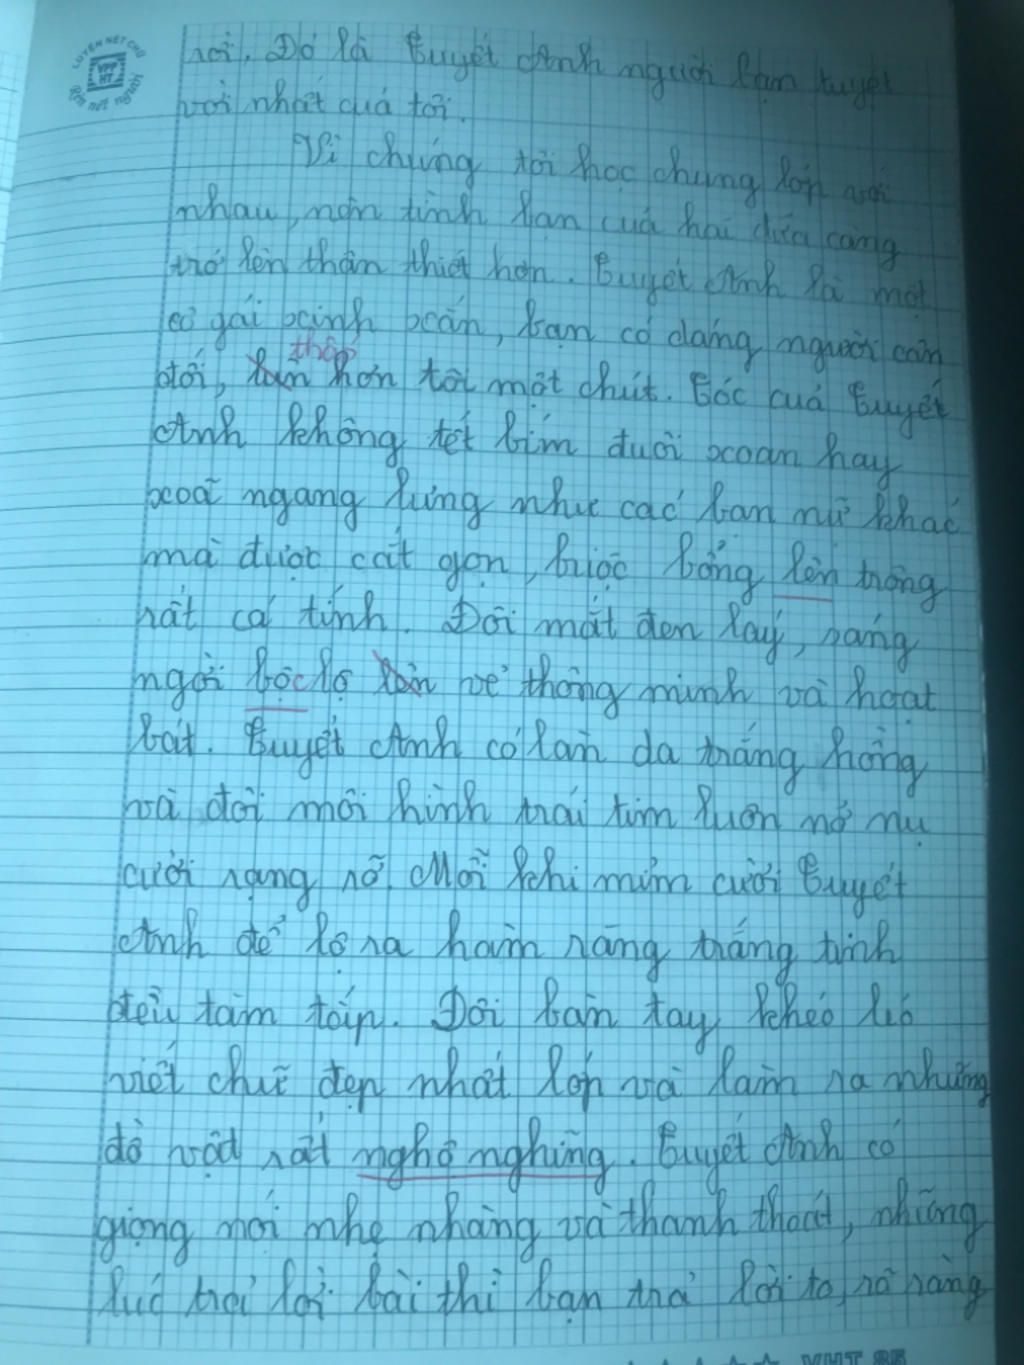 LUYỆN NÉT CHỮ
VPP
HT
Rèn nết người
rồi. Đó là Tuyết Anh người bạn tuyệt
vời nhất của tôi.
Vì chúng tôi học chung lớp với
nhau, nên tình bạn của hai đứa càng
trở lên thân thiết hơn. Tuyết Anh là một
cô gái xinh xắn, bạn có dáng người cân
thấp
đối, lùn hơn tôi một chút. Tóc của Tuyết
Anh không tết bím đuôi xoan hay
xoã ngang lưng như các bạn nữ khác
mà được cắt gọn, buộc bổng lên trông
rất cá tính. Đôi mắt đen láy, sáng
ngời bộc lộ lên vẻ thông minh và hoạt
bát. Tuyết Anh có làn da trắng hồng
và đôi môi hình trái tim luôn nở nụ
cười rạng rỡ. Mỗi khi mỉm cười Tuyết
Anh để lộ ra hàm răng trắng tinh
đều tăm tắp. Đôi bàn tay khéo léo
viết chữ đẹp nhất lớp và làm ra những
đồ vật rất nghộ nghĩng. Tuyết Anh có
giọng nói nhẹ nhàng và thanh thoát, nhưng
lúc trả lời bài thì bạn trả lời to, rõ ràng
VMT 85